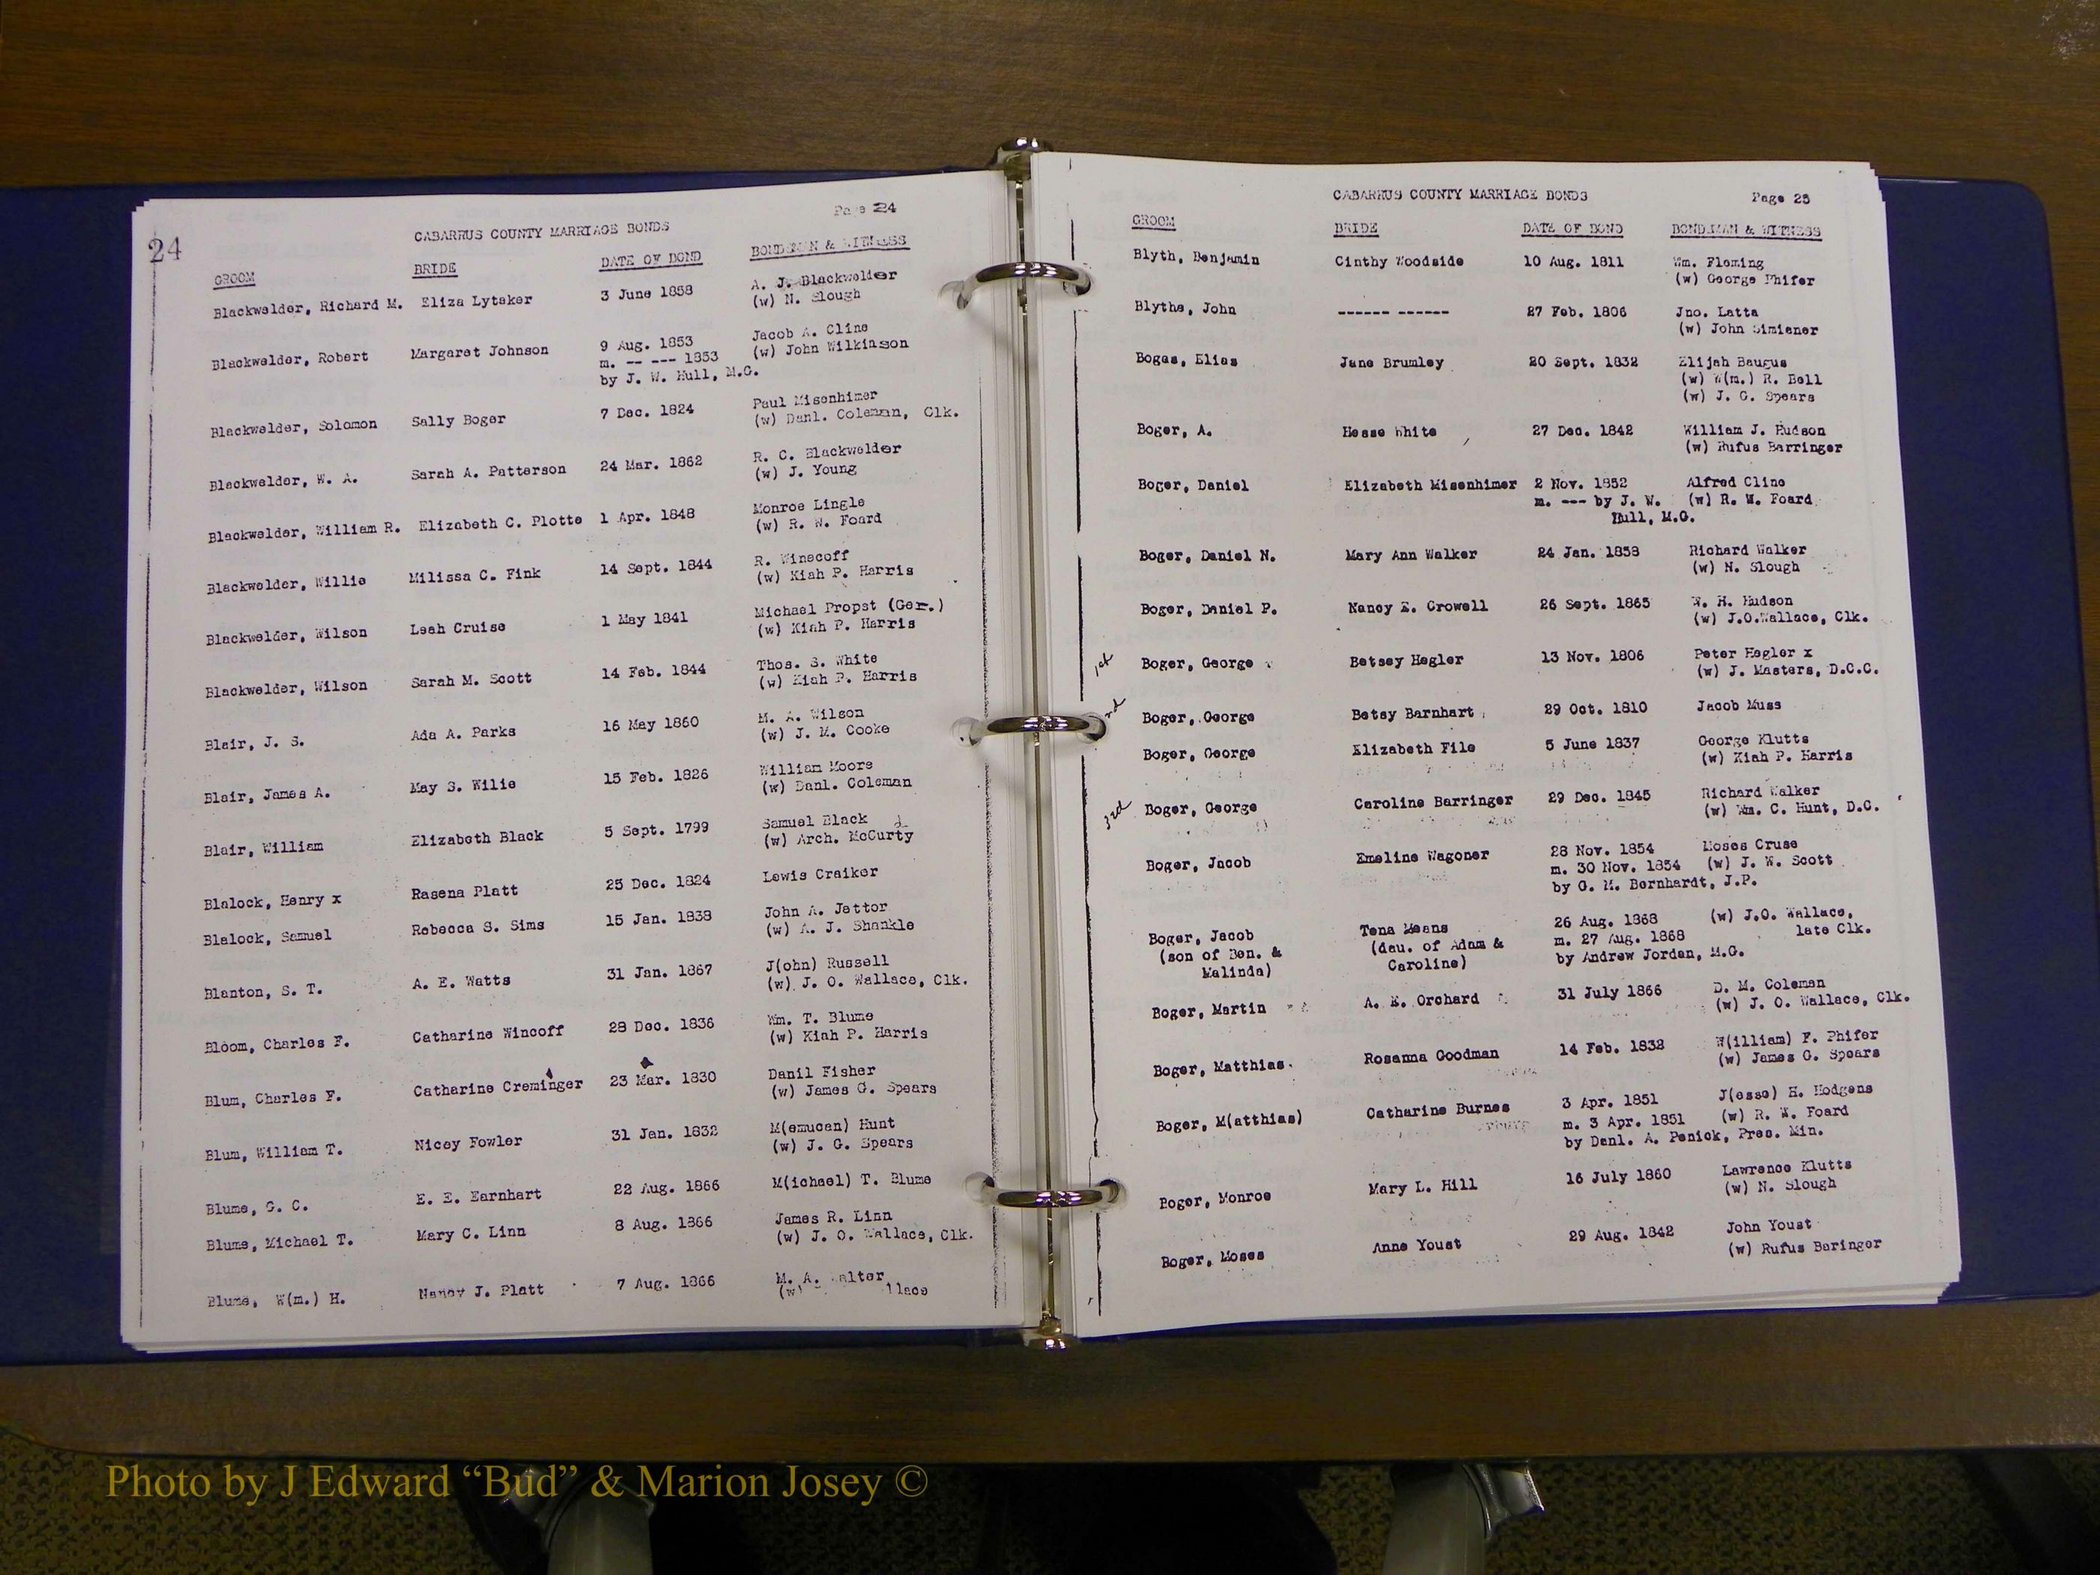 24
Page 24
CABARRUS COUNTY MARRIAGE BONDS
GROOM BRIDE DATE OF BOND BONDSMAN & WITNESS
Blackwelder, Richard M. Eliza Lytaker 3 June 1858 A. J. Blackwelder
(w) N. Slough
Blackwelder, Robert Margaret Johnson 9 Aug. 1853 Jacob A. Cline
m. -- --- 1853 (w) John Wilkinson
by J. W. Hull, M.G.
Blackwelder, Solomon Sally Boger 7 Dec. 1824 Paul Misenhimer
(w) Danl. Coleman, Clk.
Blackwelder, W. A. Sarah A. Patterson 24 Mar. 1862 R. C. Blackwelder
(w) J. Young
Blackwelder, William R. Elizabeth C. Plotte 1 Apr. 1848 Monroe Lingle
(w) R. W. Foard
Blackwelder, Willie Milissa C. Fink 14 Sept. 1844 R. Winecoff
(w) Kiah P. Harris
Blackwelder, Wilson Leah Cruise 1 May 1841 Michael Propst (Ger.)
(w) Kiah P. Harris
Blackwelder, Wilson Sarah M. Scott 14 Feb. 1844 Thos. S. White
(w) Kiah P. Harris
Blair, J. S. Ada A. Parks 16 May 1860 M. A. Wilson
(w) J. M. Cooke
Blair, James A. May S. Wilie 15 Feb. 1826 William Moore
(w) Danl. Coleman
Blair, William Elizabeth Black 5 Sept. 1799 Samuel Black
(w) Arch. McCurty
Blalock, Henry x Rasena Platt 25 Dec. 1824 Lewis Craiker
Blalock, Samuel Rebecca S. Sims 15 Jan. 1838 John A. Jettor
(w) A. J. Shankle
Blanton, S. T. A. E. Watts 31 Jan. 1867 J(ohn) Russell
(w) J. O. Wallace, Clk.
Bloom, Charles F. Catharine Wincoff 28 Dec. 1836 Wm. T. Blume
(w) Kiah P. Harris
Blum, Charles F. Catharine Creminger 23 Mar. 1830 Danil Fisher
(w) James G. Spears
Blum, William T. Nicey Fowler 31 Jan. 1832 M(emucan) Hunt
(w) J. G. Spears
Blume, G. C. E. E. Earnhart 22 Aug. 1866 M(ichael) T. Blume
Blume, Michael T. Mary C. Linn 8 Aug. 1866 James R. Linn
(w) J. O. Wallace, Clk.
Blume, W(m.) H. Nancy J. Platt 7 Aug. 1866 M. A. Walter
(w)
CABARRUS COUNTY MARRIAGE BONDS Page 25
GROOM BRIDE DATE OF BOND BONDSMAN & WITNESS
Blyth, Benjamin Cinthy Woodside 10 Aug. 1811 Wm. Fleming
(w) George Phifer
Blythe, John ------ ------ 27 Feb. 1806 Jno. Latta
(w) John Simiener
Bogas, Elias Jane Brumley 20 Sept. 1832 Elijah Baugus
(w) W(m.) R. Bell
(w) J. G. Spears
Boger, A. Hesse White 27 Dec. 1842 William J. Hudson
(w) Rufus Barringer
Boger, Daniel Elizabeth Misenhimer 2 Nov. 1852 Alfred Cline
m. --- by J. W. (w) R. W. Foard
Hull, M.G.
Boger, Daniel N. Mary Ann Walker 24 Jan. 1858 Richard Walker
(w) N. Slough
Boger, Daniel P. Nancy E. Crowell 26 Sept. 1865 W. H. Hudson
(w) J.O.Wallace, Clk.
1st Boger, George Betsey Hegler 13 Nov. 1806 Peter Hegler x
(w) J. Masters, D.C.C.
nd Boger, George Betsy Barnhart 29 Oct. 1810 Jacob Muss
Boger, George Elizabeth File 5 June 1837 George Klutts
(w) Kiah P. Harris
3rd Boger, George Caroline Barringer 29 Dec. 1845 Richard Walker
(w) Wm. C. Hunt, D.C.
Boger, Jacob Emeline Wagoner 28 Nov. 1854 Moses Cruse
m. 30 Nov. 1854 (w) J. W. Scott
by G. M. Bernhardt, J.P.
Boger, Jacob Tena Means 26 Aug. 1868 (w) J.O. Wallace,
(son of Ben. & (dau. of Adam & m. 27 Aug. 1868 late Clk.
Malinda) Caroline) by Andrew Jordan, M.G.
Boger, Martin A. E. Orchard 31 July 1866 D. M. Coleman
(w) J. O. Wallace, Clk.
Boger, Matthias Rosanna Goodman 14 Feb. 1832 W(illiam) F. Phifer
(w) James G. Spears
Boger, M(atthias) Catharine Burnes 3 Apr. 1851 J(esse) H. Hodgens
m. 3 Apr. 1851 (w) R. W. Foard
by Danl. A. Penick, Pres. Min.
Boger, Monroe Mary L. Hill 16 July 1860 Lawrence Klutts
(w) N. Slough
Boger, Moses Anne Youst 29 Aug. 1842 John Youst
(w) Rufus Baringer
Photo by J Edward “Bud” & Marion Josey ©